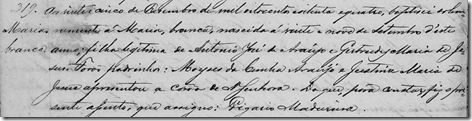 219. Aos vinte cinco de Dezembro de mil oitocento e oitenta e quatro, baptizei solem
Maria nemente a Maria, branca, nascida a vinte e nove de Setembro d'este
branca anno, filha legitima de Antonio José de Araujo e Gertrudes Maria de Je
sus. Foraõ padrinhos: Moyses da Cunha Araujo e Jesuina Maria de
Jesus apresentou a coroa de N. Senhora. Do que, para constar, fiz o pre
sente assento, que assignei: Vigario Madureira